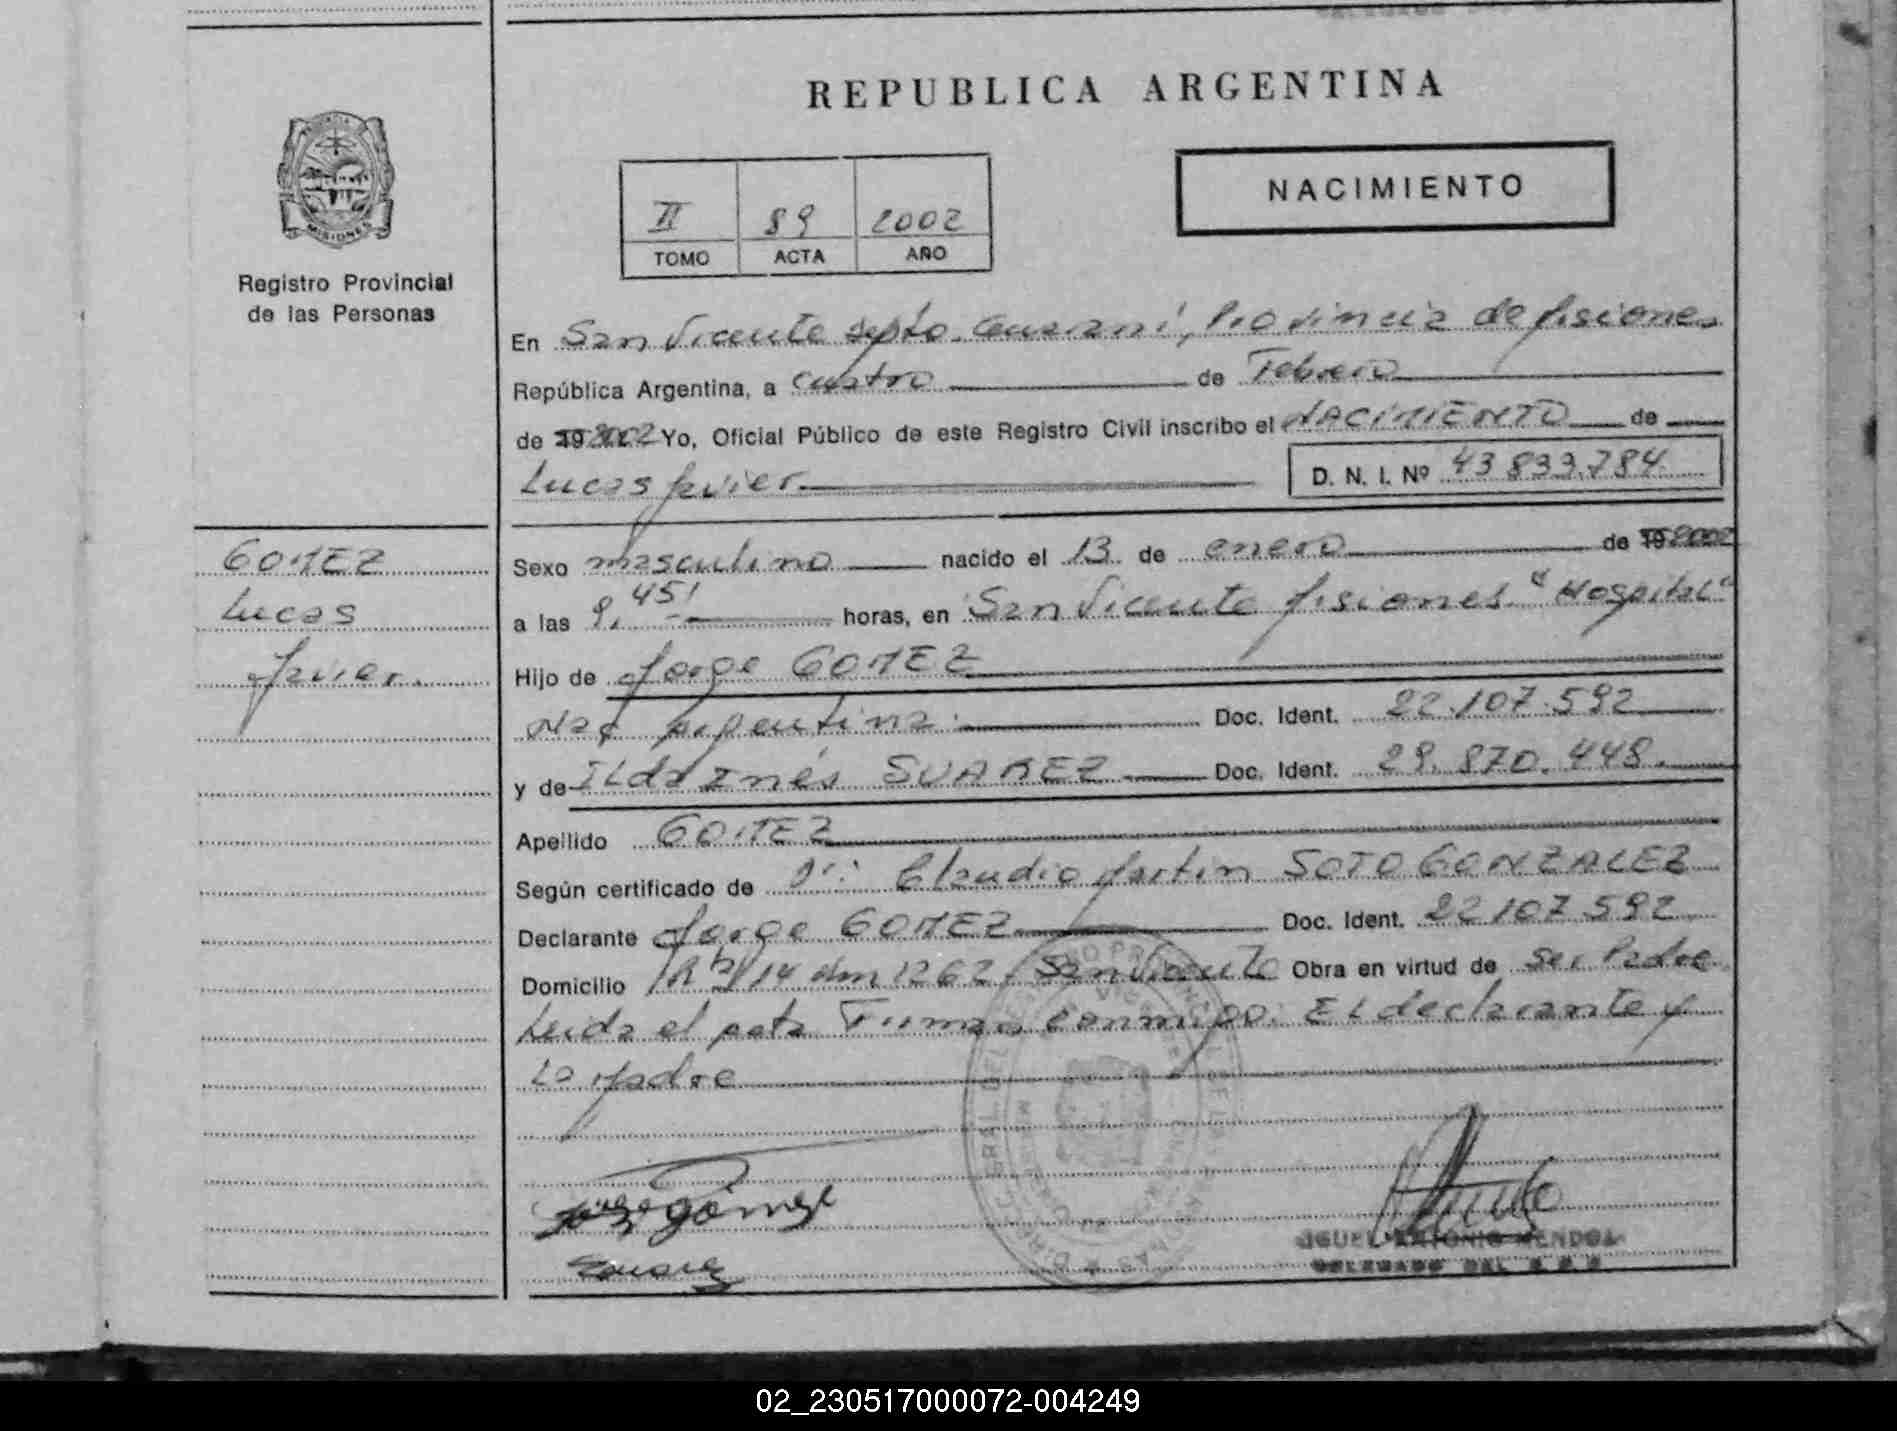 REPUBLICA ARGENTINA
NACIMIENTO
II 89 2002
TOMO ACTA AÑO
MISIONES
Registro Provincial
de las Personas
En San Vicente Dpto. Guaraní, Provincia de Misiones
República Argentina, a cuatro de Febrero
de 19 2002 Yo, Oficial Público de este Registro Civil inscribo el NACIMIENTO de
Lucas Javier D. N. I. Nº 43 833.784
GOMEZ
Lucas
Javier.
Sexo masculino nacido el 13 de enero de 19 2002
a las 9,45 horas, en San Vicente Misiones "Hospital"
Hijo de Jorge GOMEZ
Nac Argentina. Doc. Ident. 22.107.592
y de Ilda Inés SUAREZ Doc. Ident. 29.870.448.
Apellido GOMEZ
Según certificado de Dr: Claudio Martin SOTO GONZALEZ
Declarante Jorge GOMEZ Doc. Ident. 22 107 592
Domicilio 14 km 1262 San Vicente Obra en virtud de ser Padre
Leida el acta Firman conmigo: El declarante y
La Madre
Jorge Gómez
Suarez
IGUEL ANTONIO MENDOZA
DELEGADO DEL R.P.P.
02_230517000072-004249